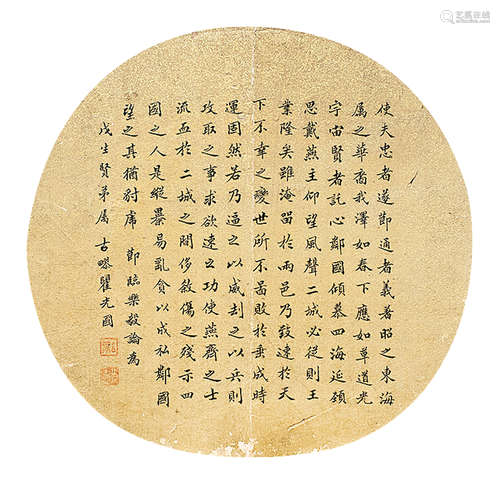 使夫忠者遂節通者義著昭之東海
属之華裔我澤如春下應如草道光
宇宙賢者託心鄰國傾慕四海延頸
思戴燕主仰望風聲二城必從則王
業隆矣雖淹留於兩邑乃致速於天
下不幸之變世所不圖敗於垂成時
運固然若乃逼之以威劫之以兵則
攻取之事求欲速之功使燕齊之士
流血於二城之間侈殺傷之殘示四
國之人是縱暴易亂貪以成私鄰國
望之其猶豺虎 節臨樂毅論為
戊生賢弟属 古疁瞿光國